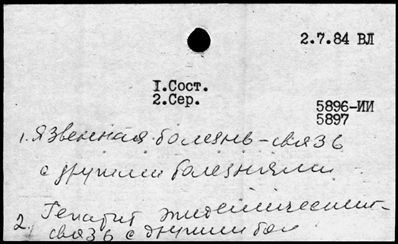 2.7.84 ВЛ
1.Сост.
2.Сер.
5896-ИИ
5897
1. Язвенная болезнь – связь
с другими болезнями
2. Гепатит эпидемический –
связь с другими бол